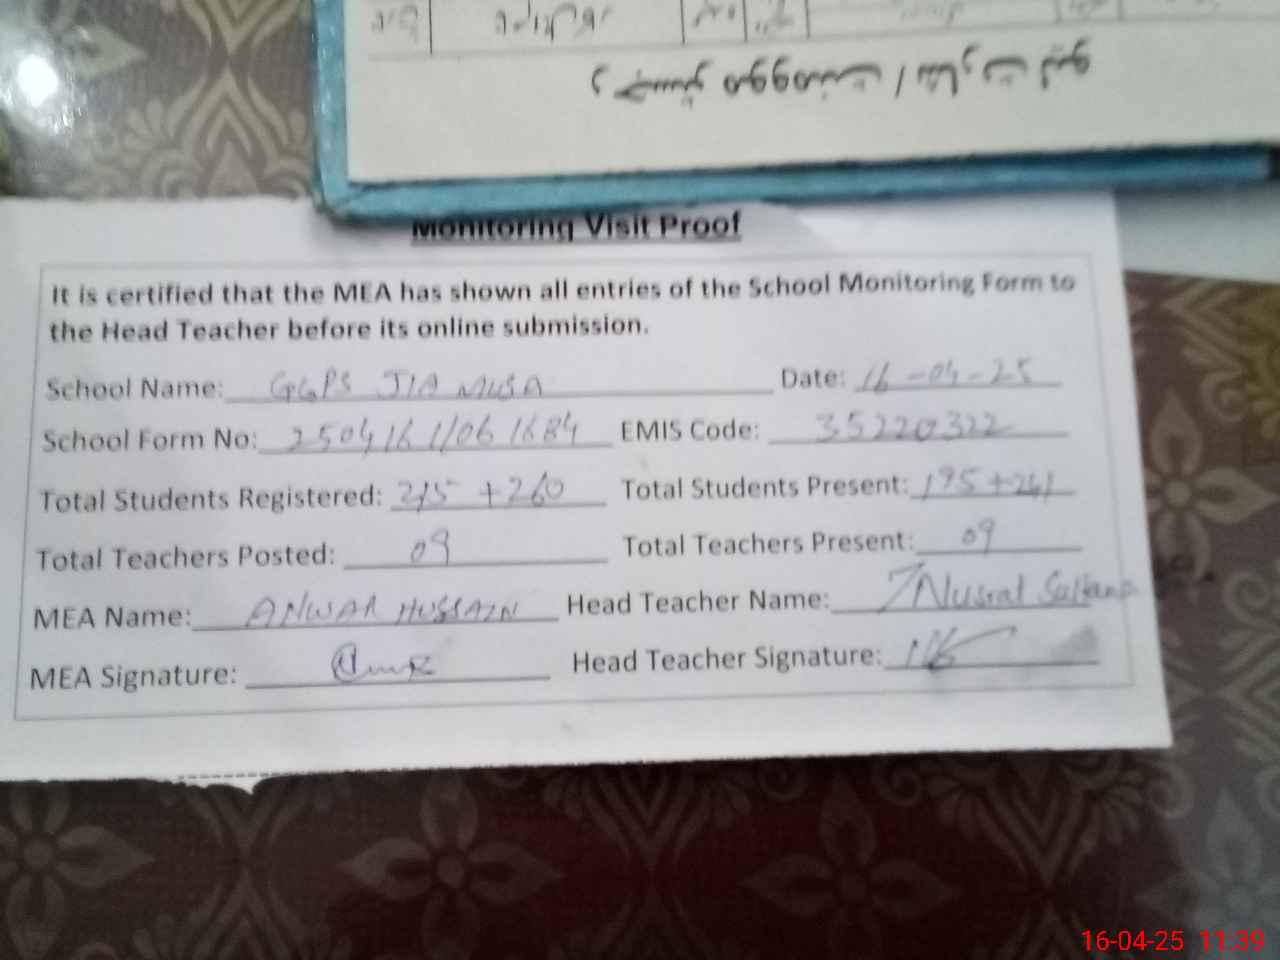 Monitoring Visit Proof
It is certified that the MEA has shown all entries of the School Monitoring Form to
the Head Teacher before its online submission.
School Name: GGPS JIA MUSA Date: 16-04-25
School Form No: 250416 1/061684 EMIS Code: 35220322
Total Students Registered: 215 +260 Total Students Present: 195+241
Total Teachers Posted: 09 Total Teachers Present: 09
MEA Name: ANWAR HUSSAIN Head Teacher Name: Nusrat Sultana
MEA Signature: Head Teacher Signature:
16-04-25 11:39